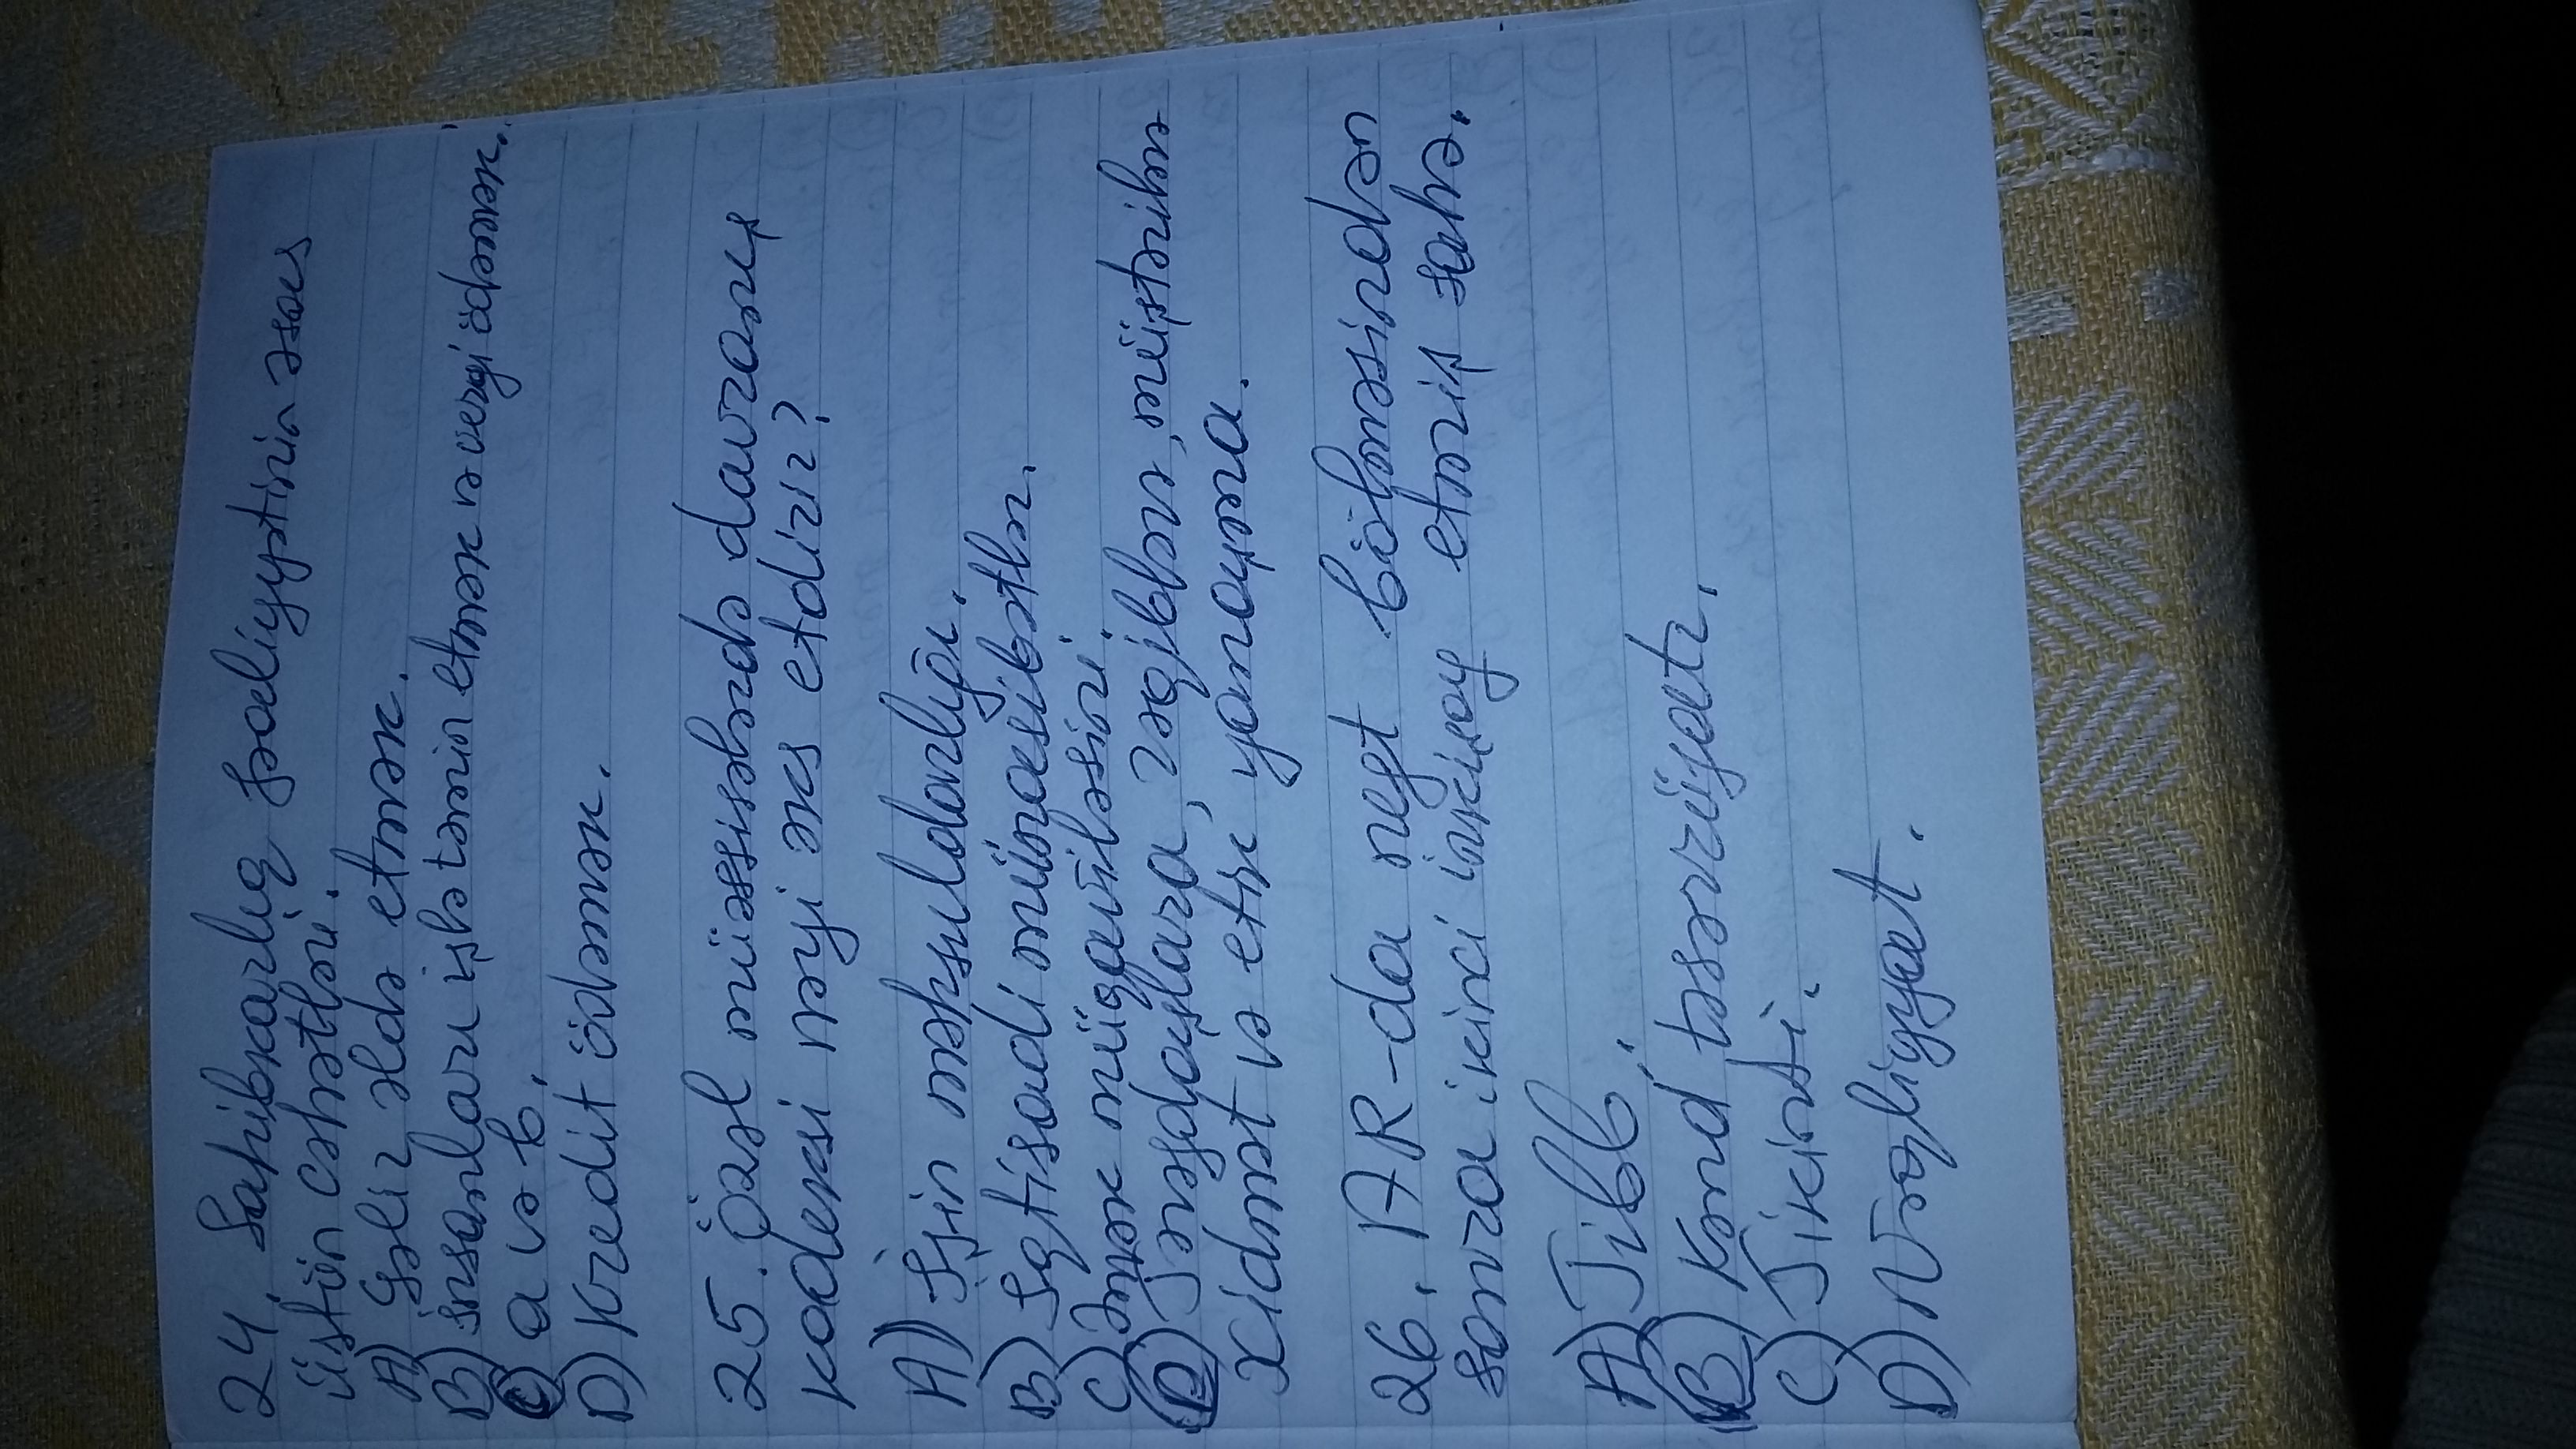 24. Sahibkarlıq fəaliyyətinin əsas
üstün cəhətləri.
A) Gəlir əldə etmək.
B) İnsanları işlə təmin etmək və vergi ödəmək.
C) a və b.
D) Kredit ödəmək.
25. Özəl müəssisələrdə davranış
kodeksi nəyi əks etdirir?
A) İşin məhsuldarlığı.
B) İqtisadi münasibətlər.
C) Əmək müqaviləsini.
D) Tərəfdaşlara, rəqiblərə, müştərilərə
xidmət və etik yanaşma.
26. AR-da neft bölməsindən
sonra ikinci inkişaf etmiş sahə.
A) Tibb.
B) Kənd təsərrüfatı.
C) Tikinti.
D) Nəqliyyat.